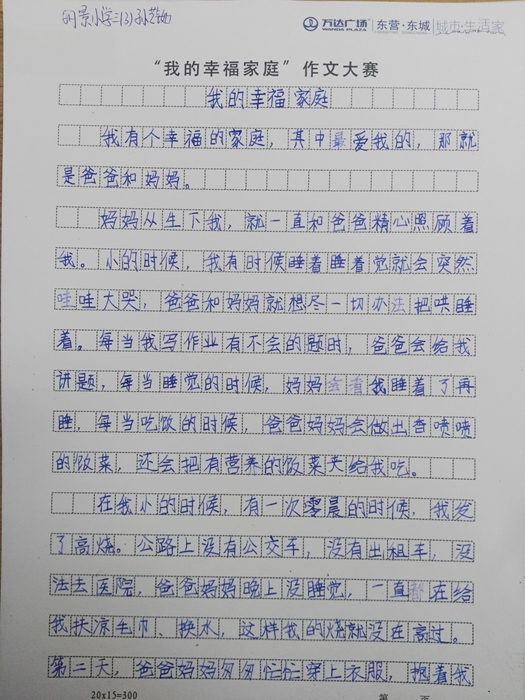 明景小学三(3)孙艺
万达广场 WANDA PLAZA 东营·东城 城市·生活家
“我的幸福家庭”作文大赛
我的幸福家庭
我有个幸福的家庭，其中最爱我的，那就
是爸爸和妈妈。
妈妈从生下我，就一直和爸爸精心照顾着
我。小的时候，我有时候睡着睡着觉就会突然
哇哇大哭，爸爸和妈妈就想尽一切办法把哄睡
着。每当我写作业有不会的题时，爸爸会给我
讲题，每当睡觉的时候，妈妈会看我睡着了再
睡，每当吃饭的时候，爸爸妈妈会做出香喷喷
的饭菜，还会把有营养的饭菜夹给我吃。
在我小的时候，有一次零晨的时候，我发
了高烧。公路上没有公交车，没有出租车，没
法去医院，爸爸妈妈晚上没睡觉，一直在给
我扶凉毛巾、换水，这样我的烧就没在高过。
第二天，爸爸妈妈匆匆忙忙穿上衣服，抱着我
20x15=300 第 页